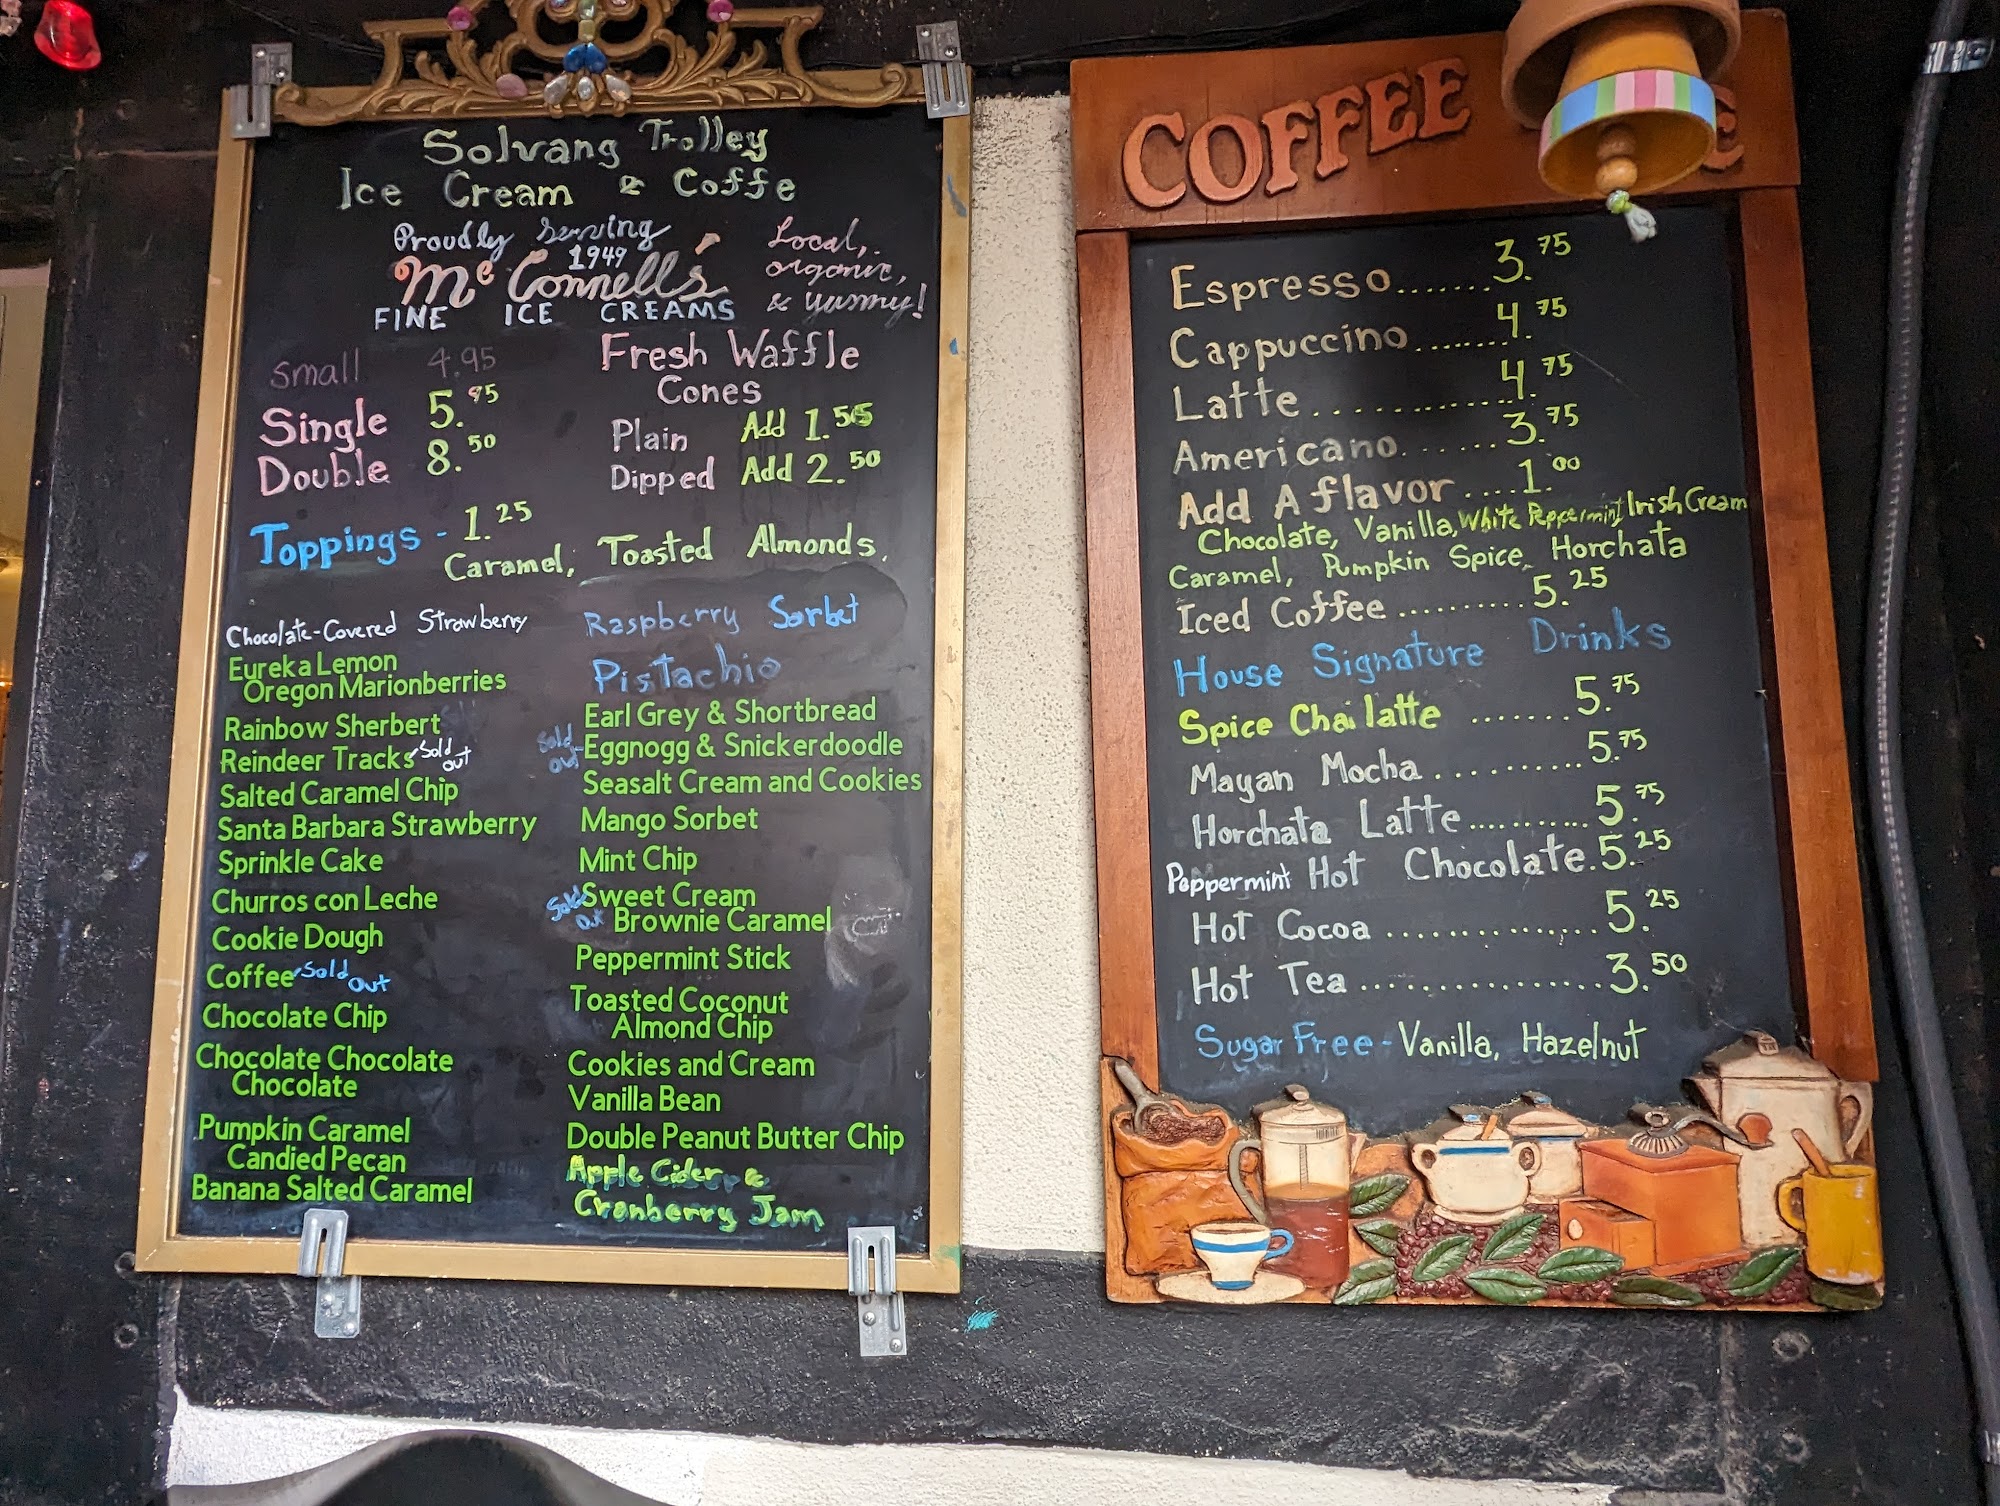 Solvang Trolley
Ice Cream & Coffe
Proudly Serving
1949
McConnell's
FINE ICE CREAMS
Local,
organic,
& yummy!
Small 4.95
Single 5.95
Double 8.50
Fresh Waffle
Cones
Plain Add 1.50
Dipped Add 2.50
Toppings - 1.25
Caramel, Toasted Almonds.
Chocolate-Covered Strawberry
Eureka Lemon
Oregon Marionberries
Rainbow Sherbert
Reindeer Tracks Sold out
Salted Caramel Chip
Santa Barbara Strawberry
Sprinkle Cake
Churros con Leche
Cookie Dough
Coffee Sold Out
Chocolate Chip
Chocolate Chocolate
Chocolate
Pumpkin Caramel
Candied Pecan
Banana Salted Caramel
Raspberry Sorbet
Pistachio
Earl Grey & Shortbread
Sold out Eggnogg & Snickerdoodle
Seasalt Cream and Cookies
Mango Sorbet
Mint Chip
Sold out Sweet Cream
Brownie Caramel
Peppermint Stick
Toasted Coconut
Almond Chip
Cookies and Cream
Vanilla Bean
Double Peanut Butter Chip
Apple Cider &
Cranberry Jam
COFFEE
Espresso.......3.75
Cappuccino........4.75
Latte.............4.75
Americano.......3.75
Add A flavor....1.00
Chocolate, Vanilla, White Peppermint Irish Cream
Caramel, Pumpkin Spice, Horchata
Iced Coffee..........5.25
House Signature Drinks
Spice Chai latte.......5.75
Mayan Mocha..........5.75
Horchata Latte..........5.75
Peppermint Hot Chocolate.5.25
Hot Cocoa...............5.25
Hot Tea................3.50
Sugar Free - Vanilla, Hazelnut